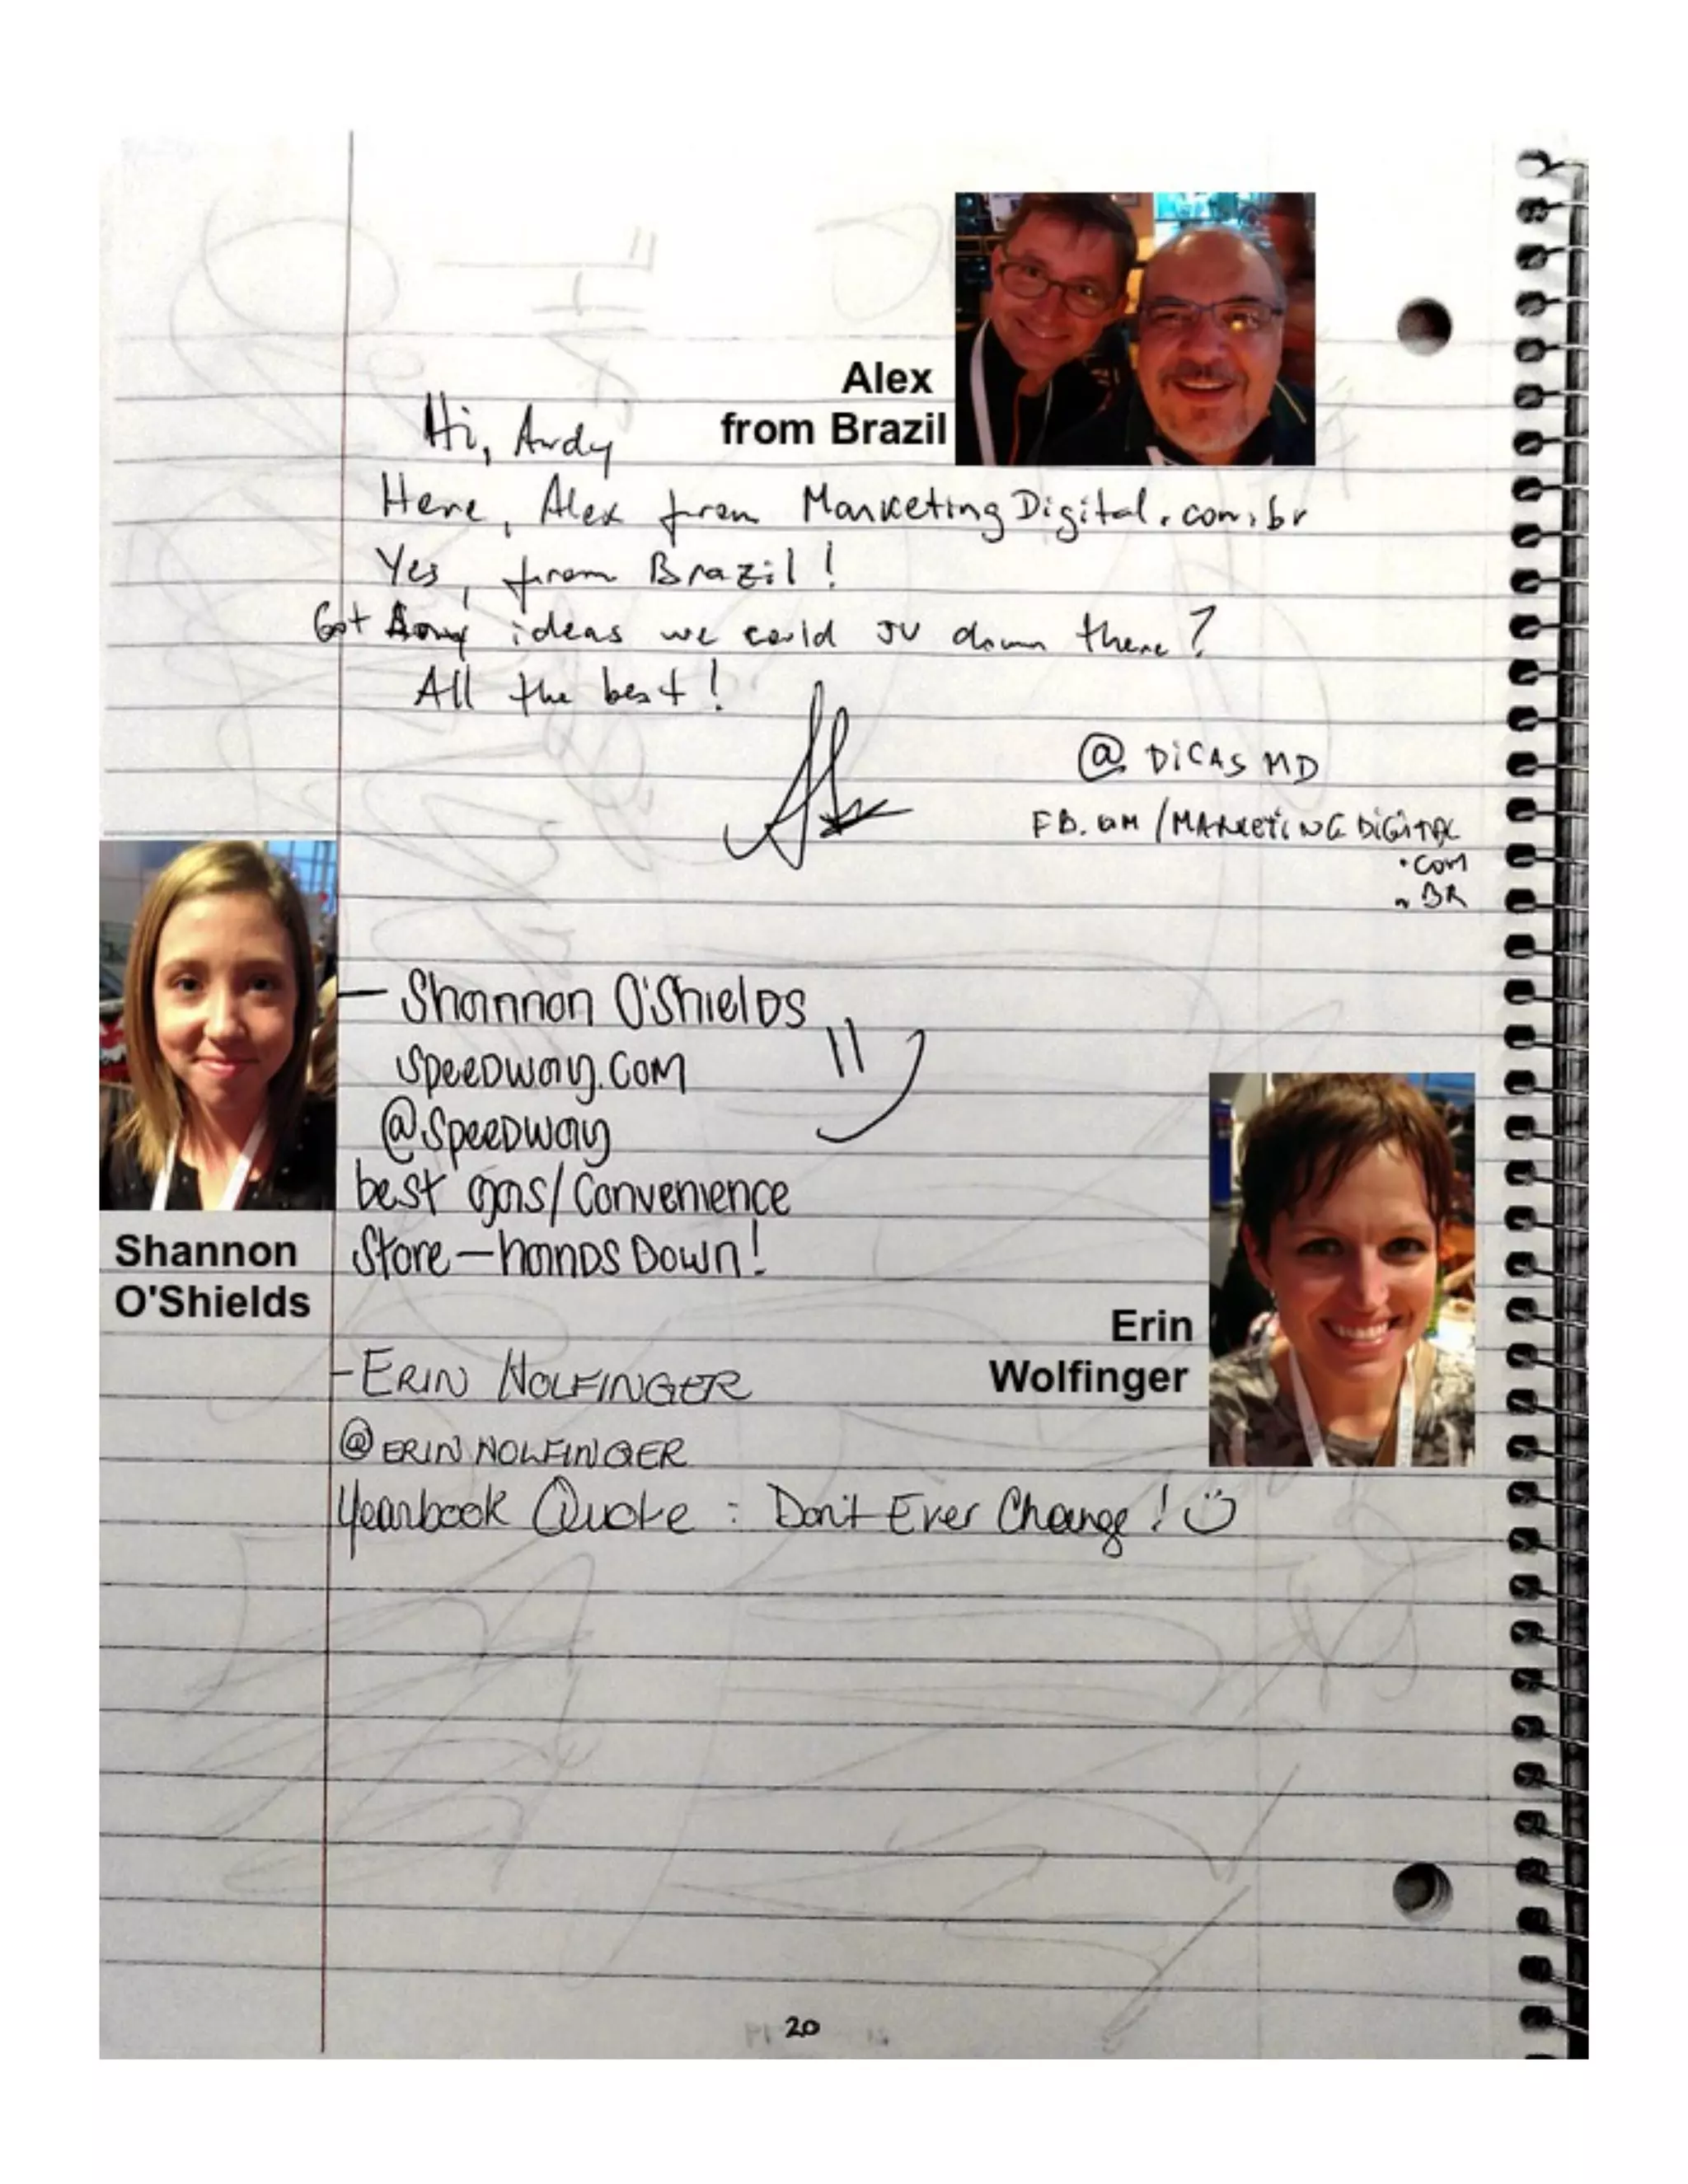 Alex
from Brazil
Hi, Andy
Here, Alex from MarketingDigital.com.br
Yes, from Brazil!
Got any ideas we could JV down there?
All the best!
@DICASMD
FB.com/MARKETINGDIGITAL
.COM
.BR
- Shannon O'Shields
Speedway.com
@Speedway
best gas/Convenience
Store - hands Down!
Shannon
O'Shields
Erin
Wolfinger
- ERIN WOLFINGER
@ERINWOLFINGER
Yearbook Quote: Don't Ever Change!
20